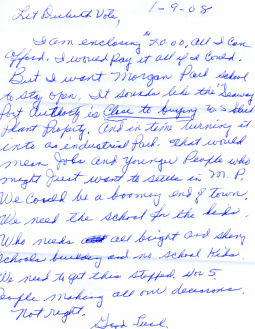 Let Duluth Vote,
1-9-08
I am enclosing $20.00, all I can
afford. I would pay it all if I could.
But I want Morgan Park school
to stay open. It sounds like the Seaway
Port Authority is Close to buying to Steel
Plant Property. And in time turning it
into an industrial Park. That would
mean Jobs and Younger People who
might Just want to settle in M. P.
We could be a booming town.
We need the school for the kids.
Who needs all bright and shiny
schools building and no school kids.
We need to get this stopped.
People making all our decisions.
Not right.
Good Luck.